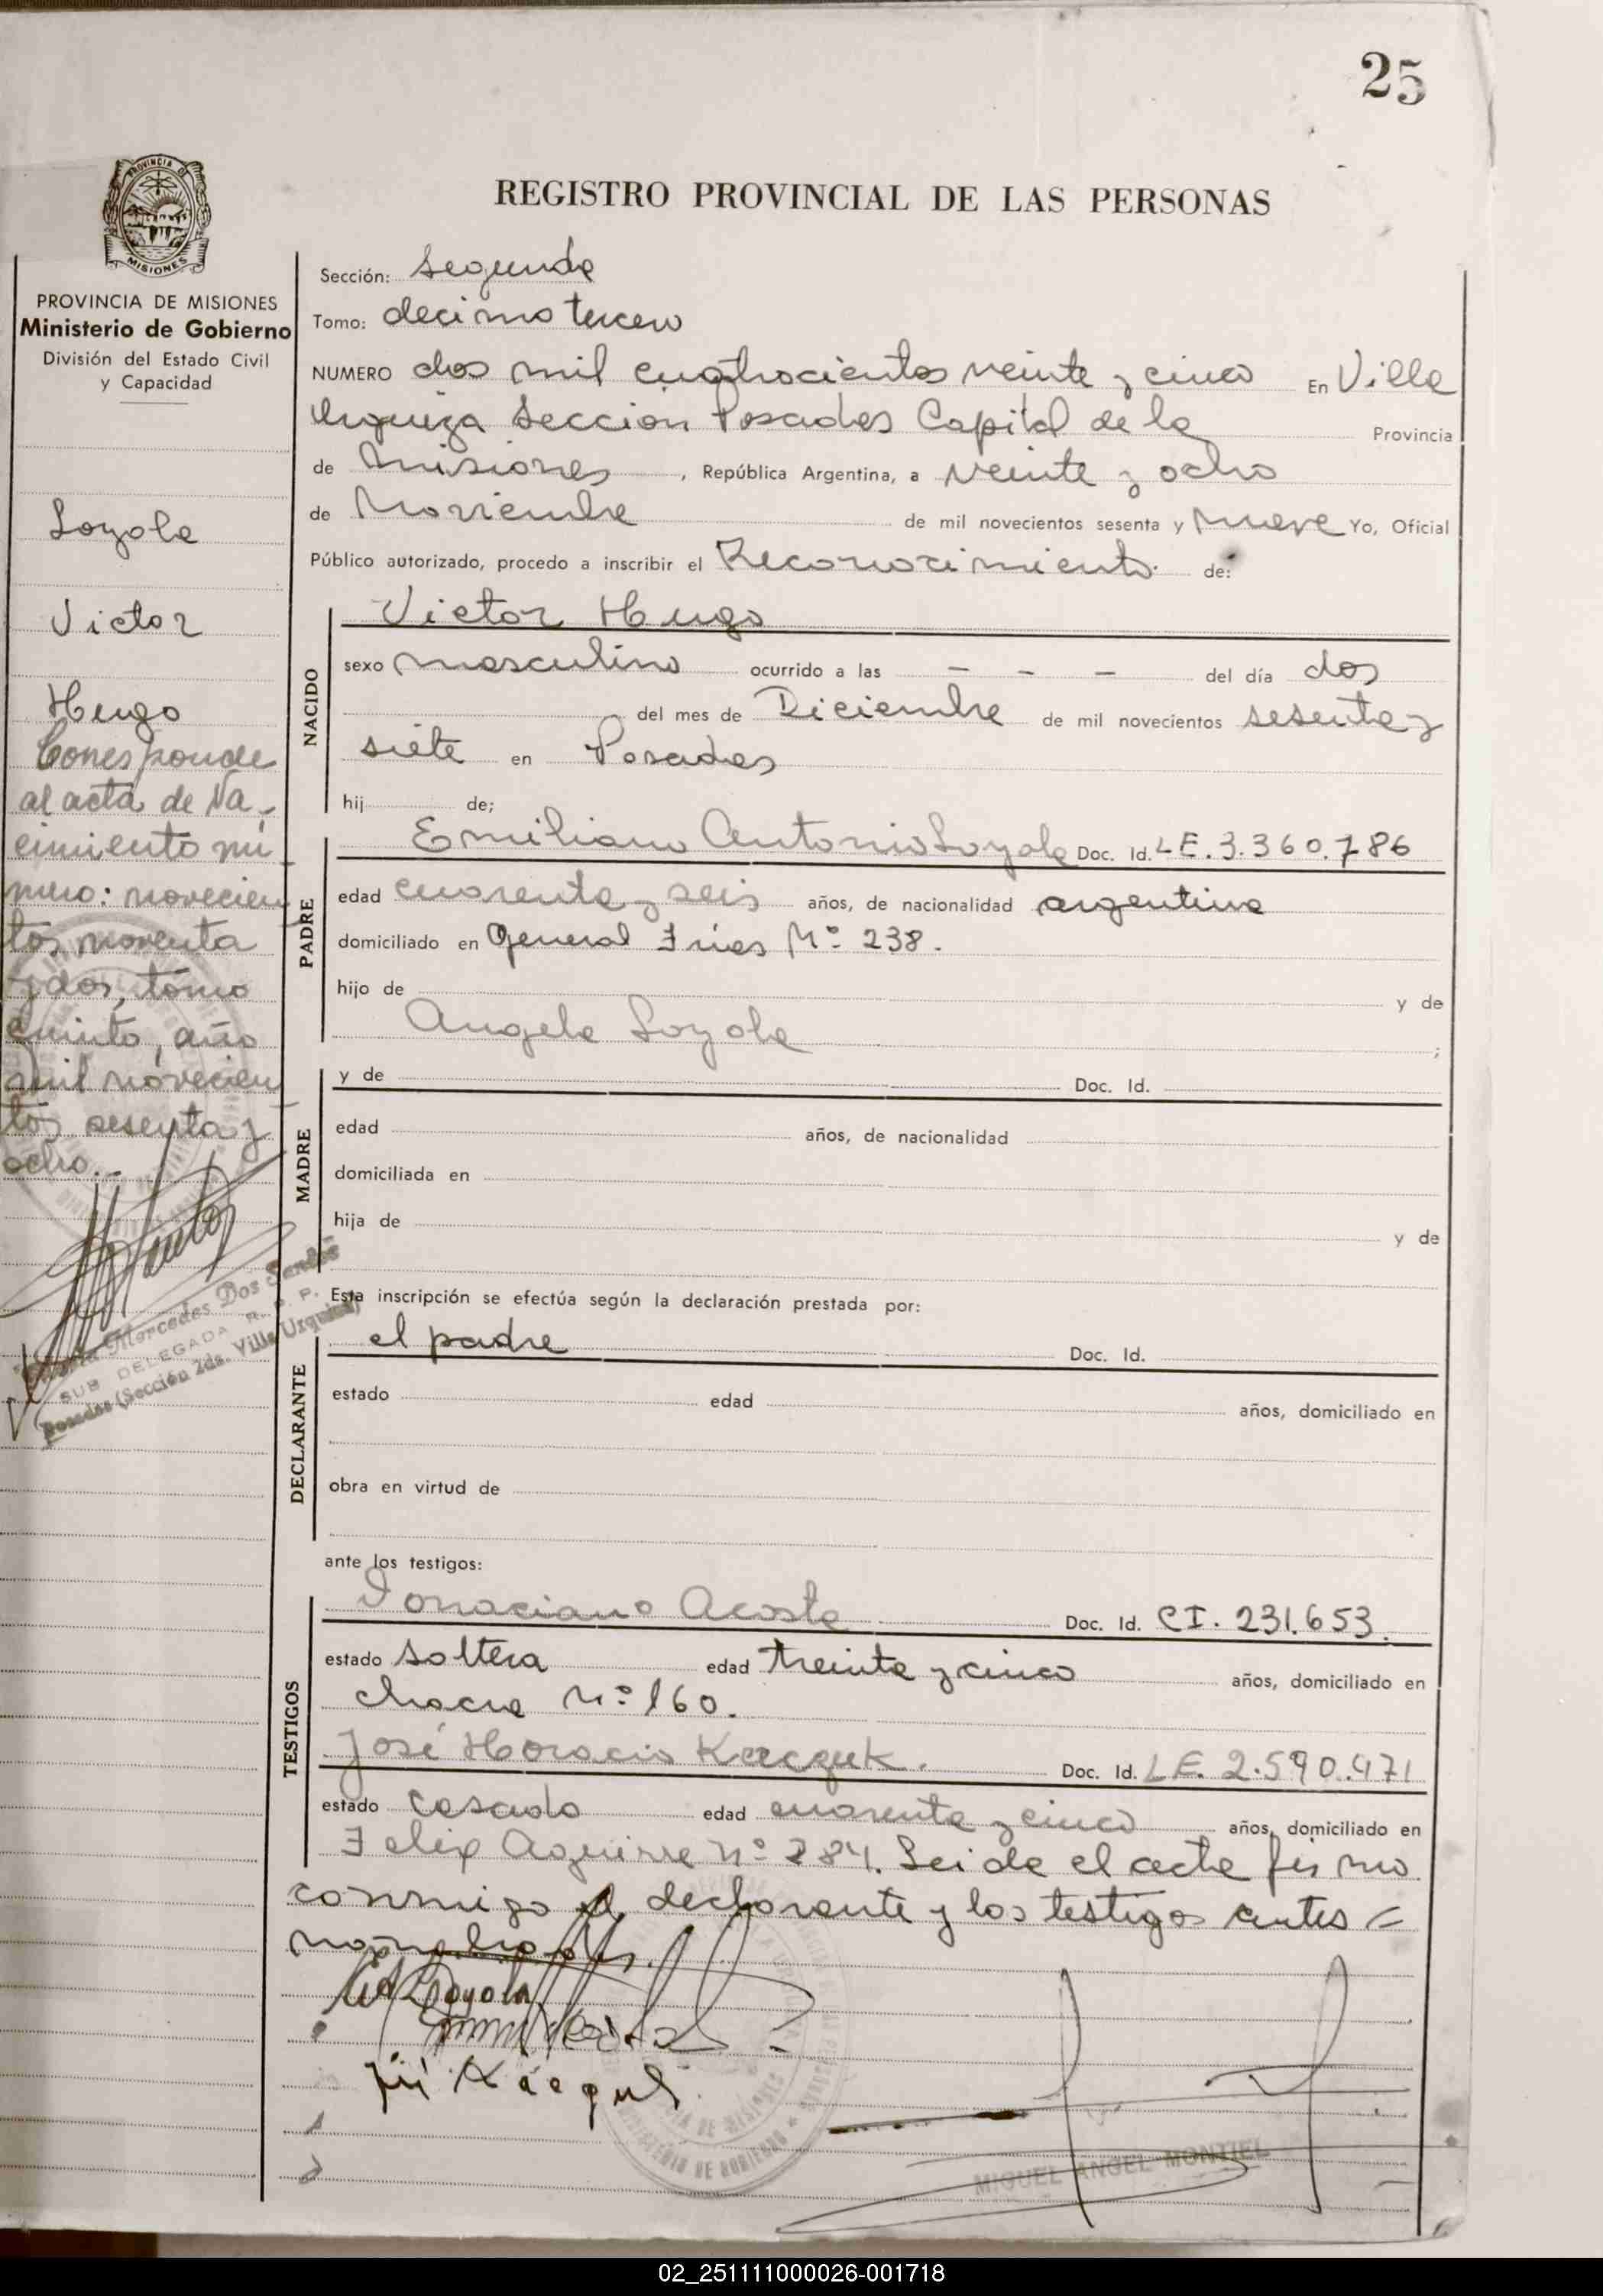 25
PROVINCIA DE
MISIONES
REGISTRO PROVINCIAL DE LAS PERSONAS
PROVINCIA DE MISIONES
Ministerio de Gobierno
División del Estado Civil
y Capacidad
Loyola
Victor
Hugo
Corresponde
al acta de Na-
cimiento nú-
mero: novecien
tos noventa
y dos, tomo
quinto, año
mil novecien
tos sesenta y
ocho.-
Mercedes Dos Santos
SUB DELEGADA R. P. P.
Posadas (Sección 2da. Villa Urquiza)
Sección: Segunda
Tomo: decimo tercero
NUMERO dos mil cuatrocientos veinte y cinco En Villa
Urquiza Sección Posadas Capital de la Provincia
de Misiones, República Argentina, a veinte y ocho
de Noviembre de mil novecientos sesenta y nueve Yo, Oficial
Público autorizado, procedo a inscribir el Reconocimiento de:
NACIDO
Victor Hugo
sexo masculino ocurrido a las - - - del día dos
del mes de Diciembre de mil novecientos sesenta y
siete en Posadas
hij de;
PADRE
Emiliano Antonio Loyola Doc. Id. LE. 3.360.786
edad cuarenta y seis años, de nacionalidad argentina
domiciliado en General Frias Nº 238.
hijo de y de
Angela Loyola ;
MADRE
y de Doc. Id.
edad años, de nacionalidad
domiciliada en
hija de y de
Esta inscripción se efectúa según la declaración prestada por:
DECLARANTE
el padre Doc. Id.
estado edad años, domiciliado en
obra en virtud de
ante los testigos:
TESTIGOS
Acosta Doc. Id. CI. 231.653.
estado soltera edad treinta y cinco años, domiciliado en
chacra Nº 160.
José Horacio Doc. Id. LE. 2.590.471
estado casado edad cuarenta y cinco años, domiciliado en
Felix Aguirre Nº 284. Leida el acta firmo
conmigo el declarante y los testigos antes =
nombrados.
Loyola
MINISTERIO DE GOBIERNO
MIGUEL ANGEL MONTIEL
02_251111000026-001718